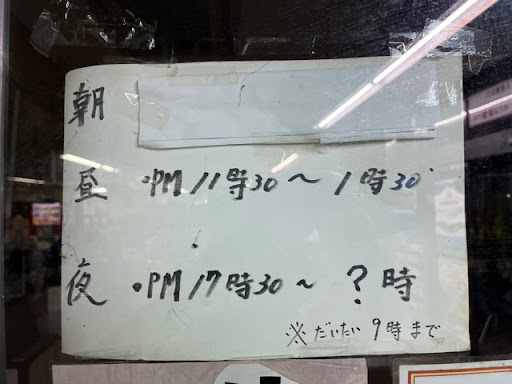 朝
昼 ・PM 11時30～1時30
夜 ・PM 17時30～ ?時
※だいたい 9時まで